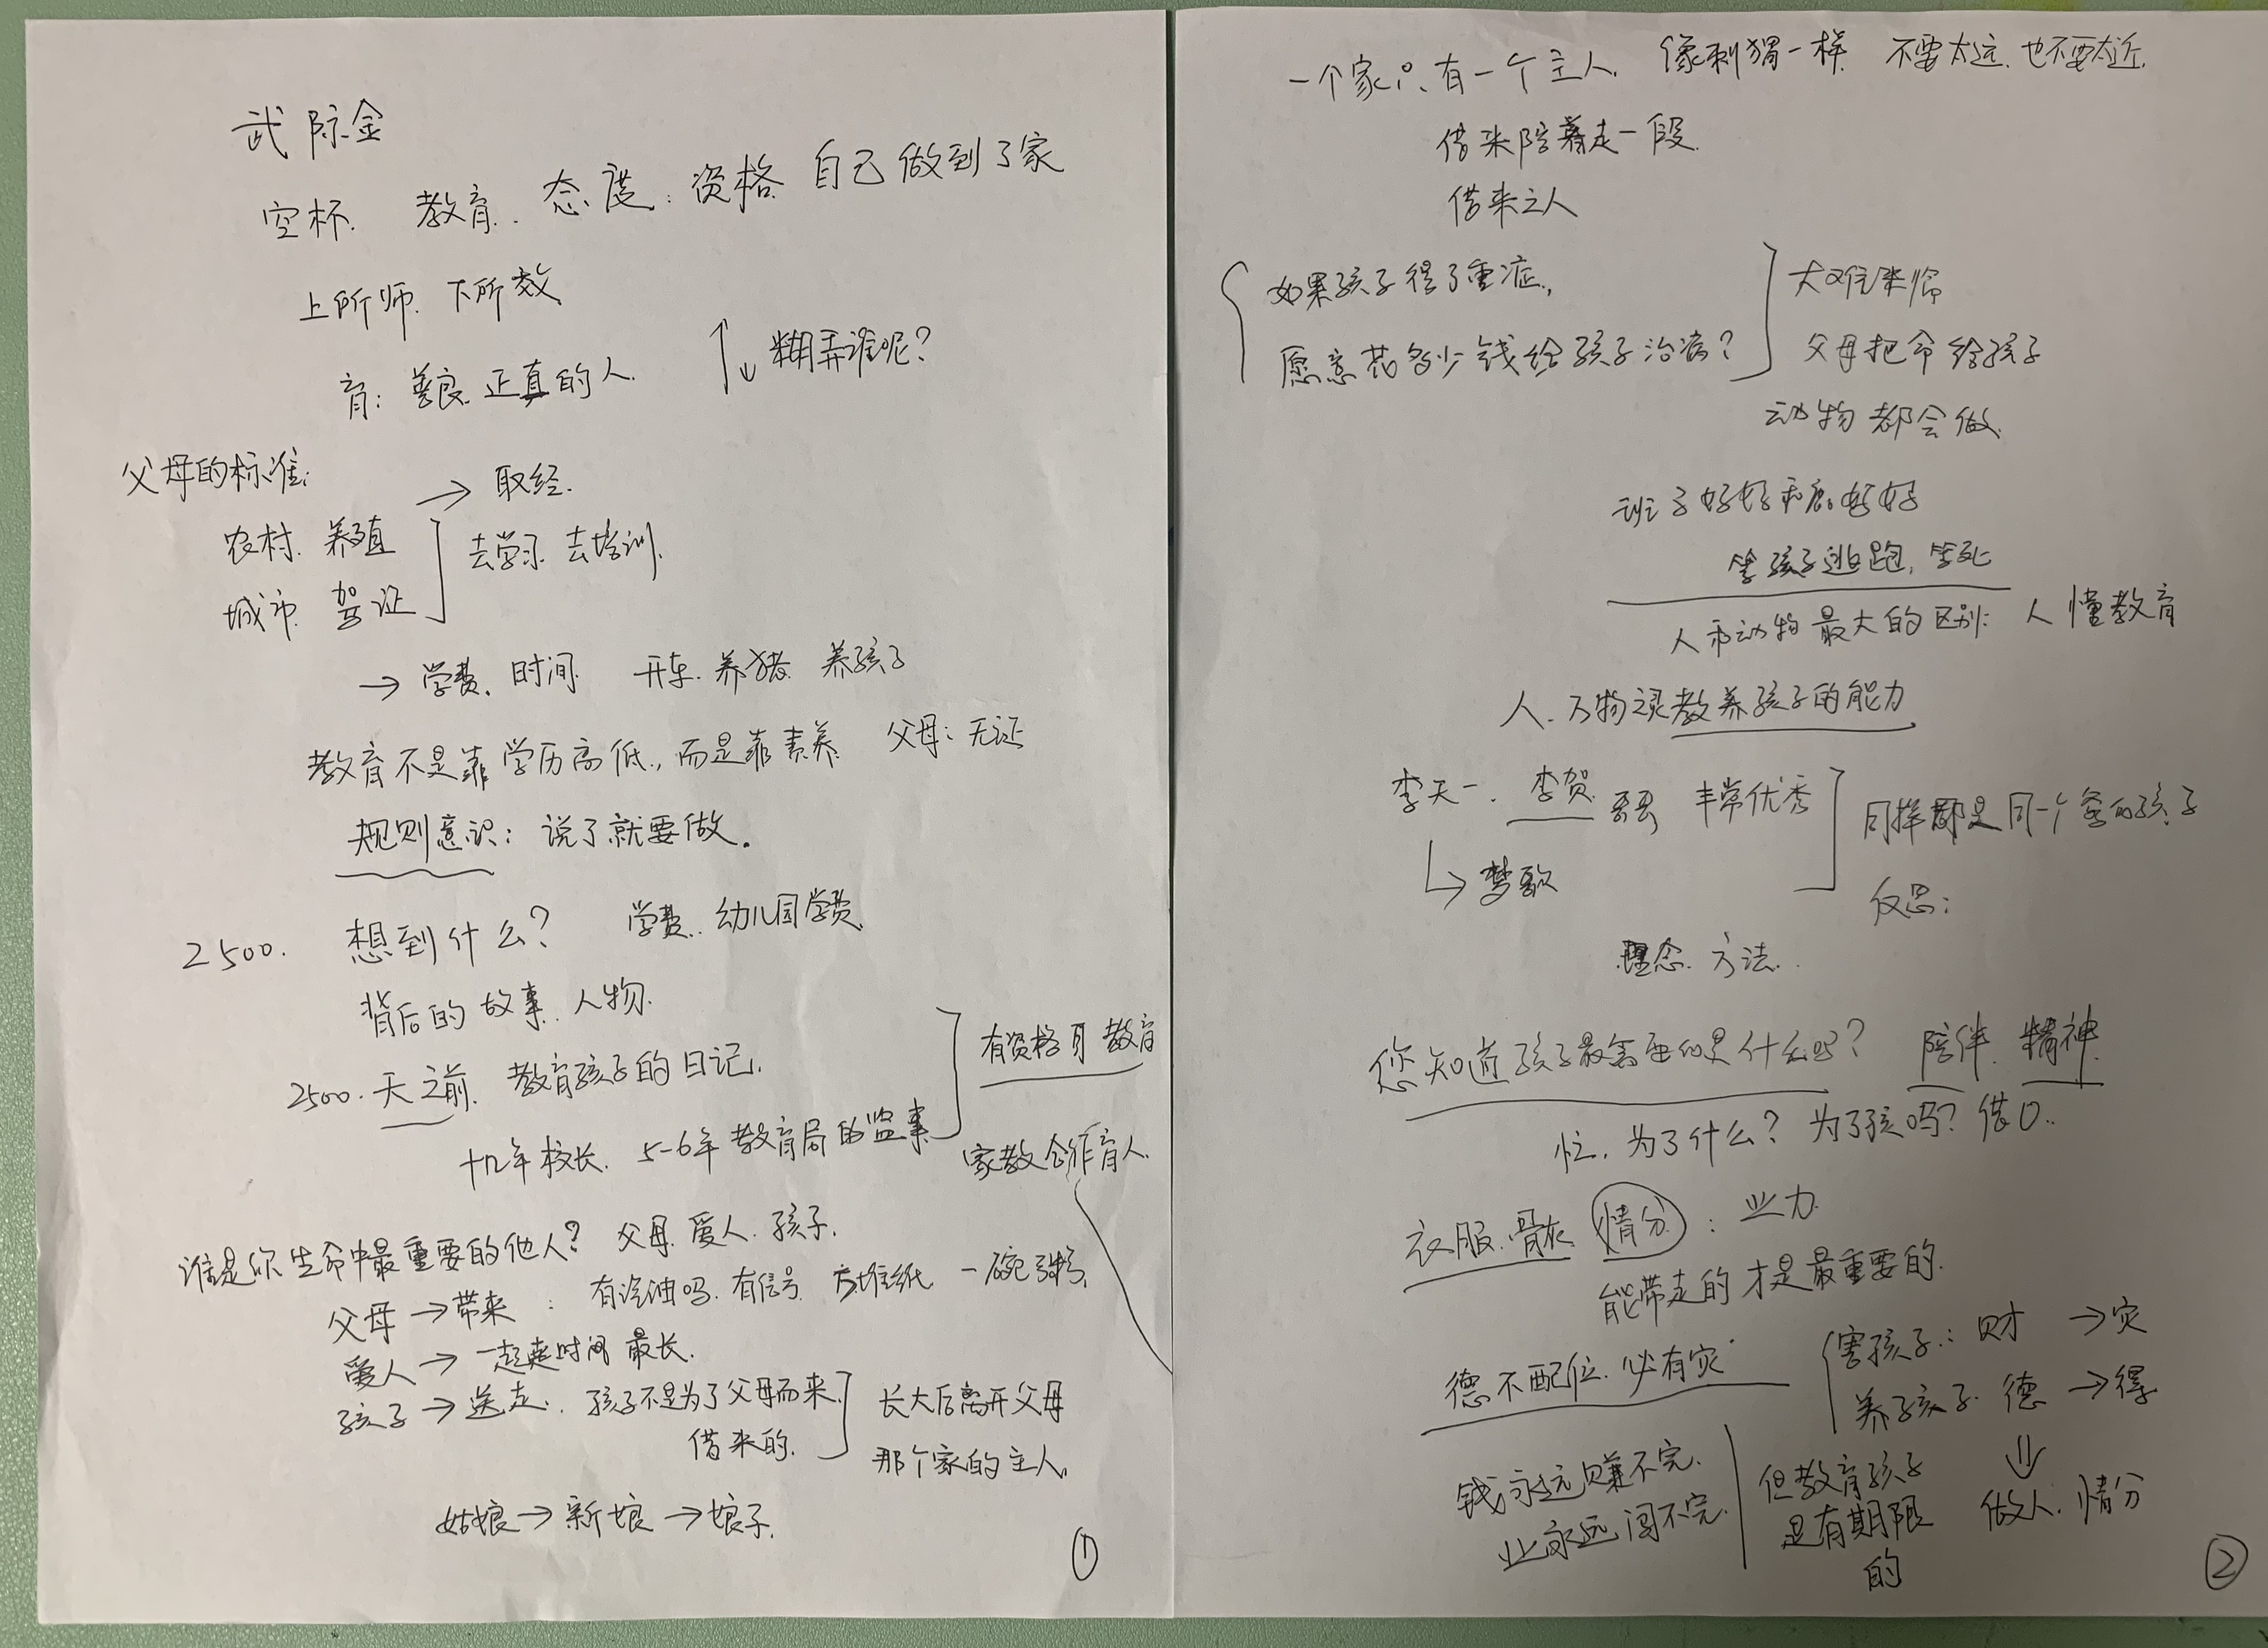 武际金
空杯. 教育. 态度. 资格 自己做到了家
上所师. 下所教
育: 善良. 正真的人. 糊弄谁呢?
父母的标准:
→ 取经.
农村. 养殖
去学习 去培训.
城市. 驾证
→ 学费. 时间. 开车. 养猪. 养孩子
教育不是靠学历高低, 而是靠素养. 父母: 无证
规则意识: 说了就要做。
2500. 想到什么? 学费. 幼儿园学费.
背后的故事. 人物.
2500. 天之前. 教育孩子的日记.
有资格 教育
十几年校长. 5-6年教育局的监事
家教合作育人.
谁是你生命中最重要的他人? 父母. 爱人. 孩子.
父母 → 带来 : 有汽油吗. 有信号. 方堆纸 一碗
爱人 → 一起走时间最长.
孩子 → 送走. 孩子不是为了父母而来.
借来的.
长大后离开父母
那个家的主人.
姑娘 → 新娘 → 娘子.
①
一个家只有一个主人. 像刺猬一样 不要太远. 也不要太近.
借来陪着走一段.
借来之人
如果孩子得了重症,
愿意花多少钱给孩子治病?
大难来临
父母把命给孩子
动物都会做.
等孩子逃跑, 等死
人和动物最大的区别: 人懂教育
人. 万物之灵教养孩子的能力
李天一. 李贺 哥哥 非常优秀
→ 梦鸽
同样都是同一个爹的孩子
反思:
理念. 方法.
您知道孩子最需要的是什么吗? 陪伴. 精神.
忙. 为了什么? 为了孩吗? 借口.
衣服. 骨灰 情分 : 业力
能带走的才是最重要的.
德不配位. 必有灾.
害孩子: 财 → 灾
养孩子. 德 → 得
⇓
做人. 情分
钱永远赚不完.
业永远闯不完.
但教育孩子
是有期限
的
②